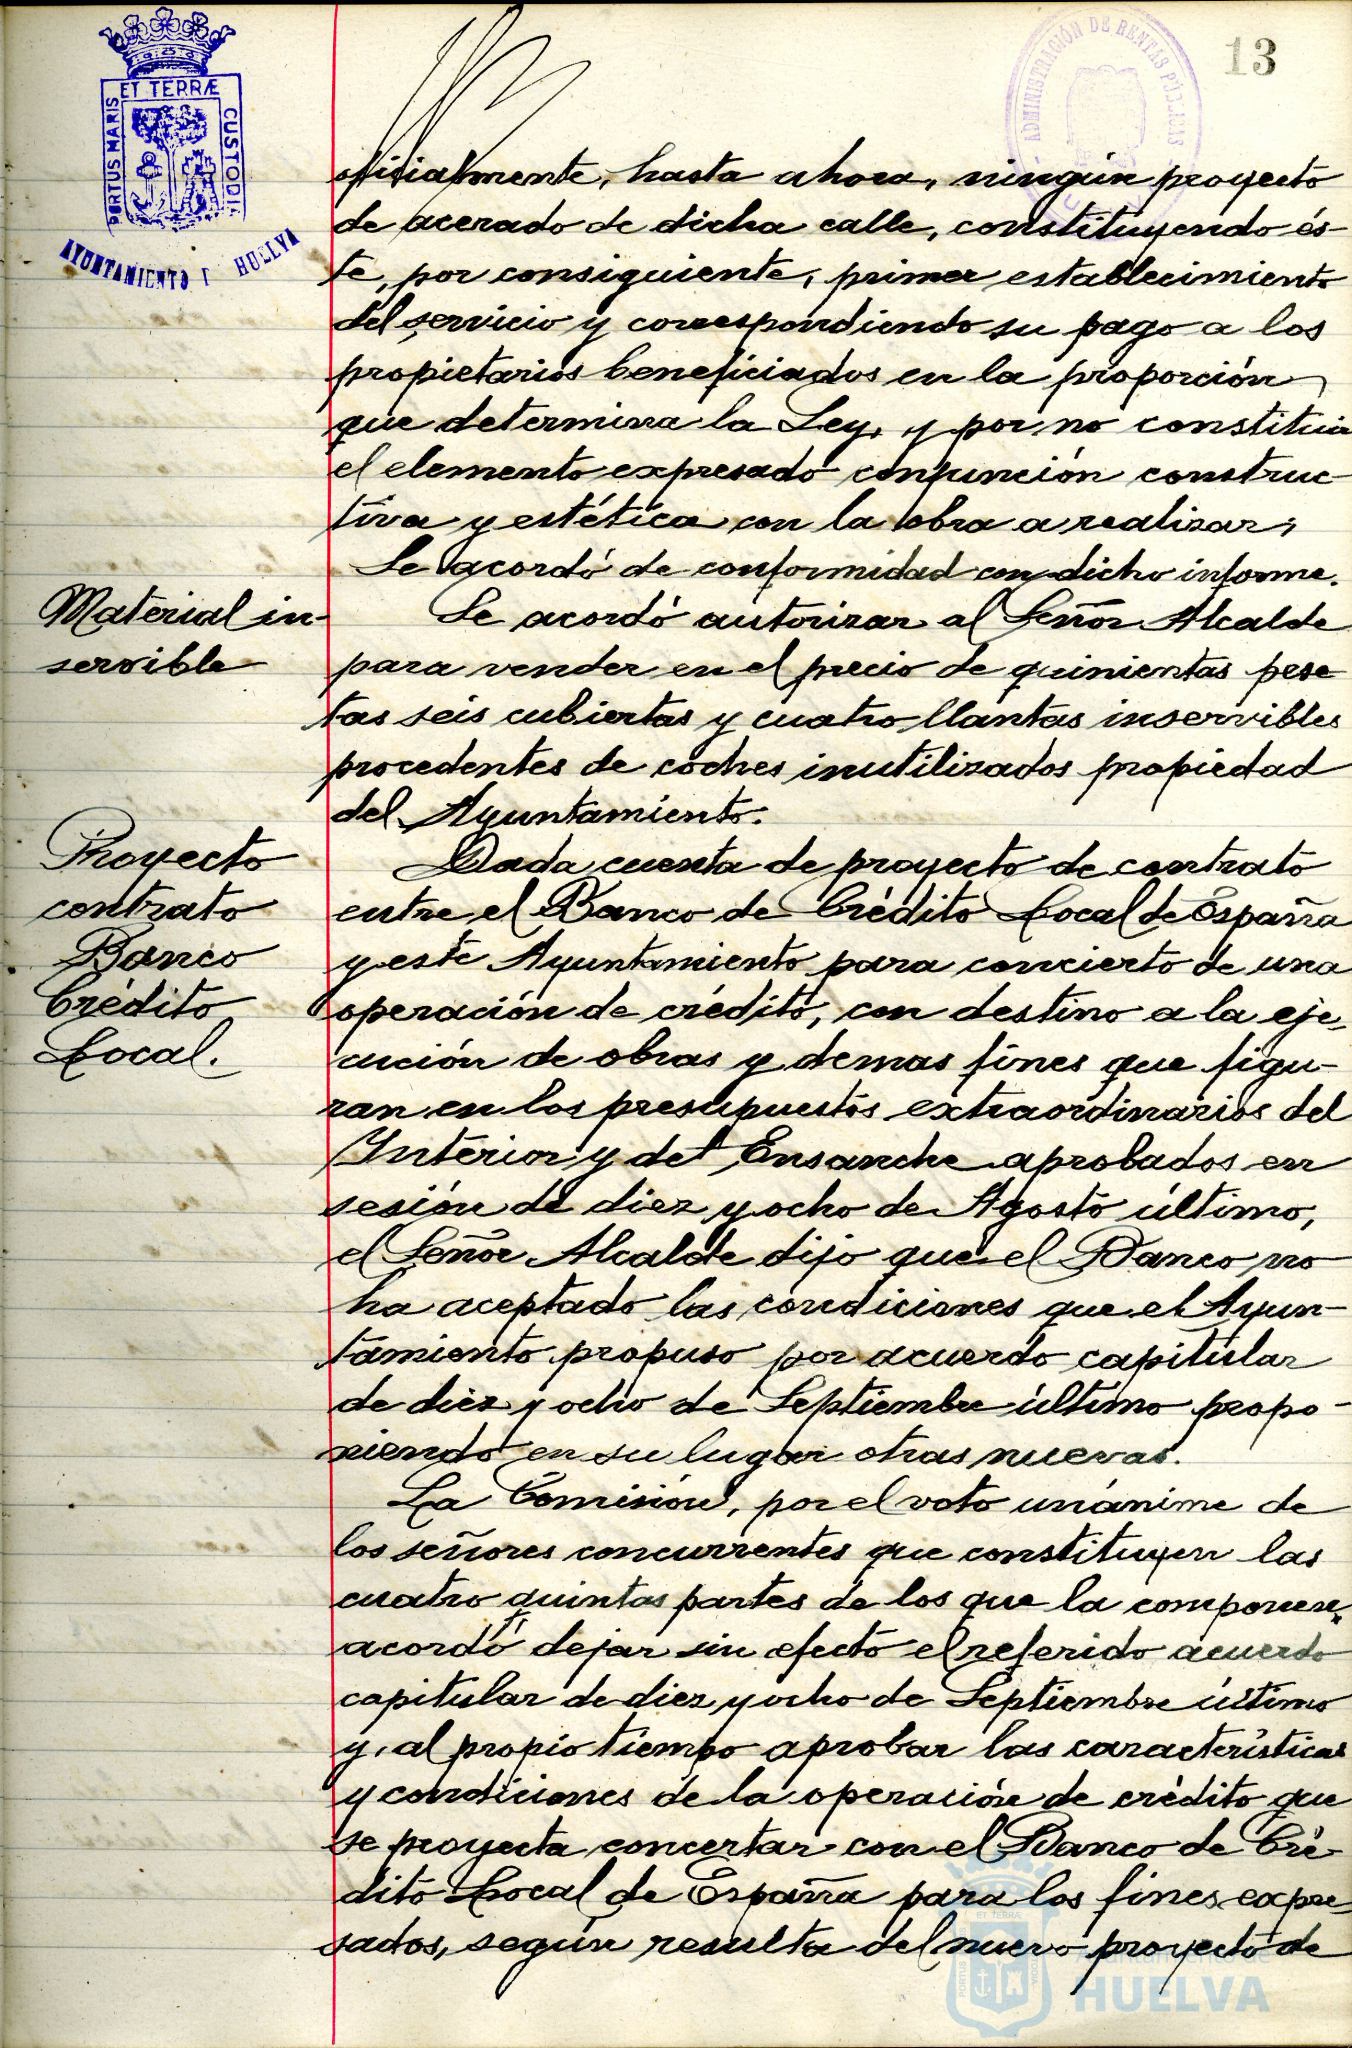 13
ADMINISTRACIÓN DE RENTAS PÚBLICAS
ET TERRÆ
PORTUS MARIS
CUSTODIA
AYUNTAMIENTO D HUELVA
oficialmente, hasta ahora, ningún proyecto
de acerado de dicha calle, constituyendo és-
te, por consiguiente, primer establecimiento
del servicio y correspondiendo su pago a los
propietarios beneficiados en la proporción
que determina la Ley, y por no constituir
el elemento expresado conjunción construc-
tiva y estética con la obra a realizar;
Se acordó de conformidad con dicho informe.
Material in-
servible
Se acordó autorizar al Señor Alcalde
para vender en el precio de quinientas pese
tas seis cubiertas y cuatro llantas inservibles
procedentes de coches inutilizados propiedad
del Ayuntamiento.
Proyecto
contrato
Banco
Crédito
Local.
Dada cuenta de proyecto de contrato
entre el Banco de Crédito Local de España
y este Ayuntamiento para concierto de una
operación de crédito, con destino a la eje-
cución de obras y demas fines que figu-
ran en los presupuestos extraordinarios del
Interior y del Ensanche aprobados en
sesión de diez y ocho de Agosto último,
el Señor Alcalde dijo que el Banco no
ha aceptado las condiciones que el Ayun-
tamiento propuso por acuerdo capitular
de diez y ocho de Septiembre último propo-
niendo en su lugar otras nuevas.
La Comisión, por el voto unánime de
los señores concurrentes que constituyen las
cuatro quintas partes de los que la componen,
acordó dejar sin efecto el referido acuerdo
capitular de diez y ocho de Septiembre último
y, al propio tiempo aprobar las características
y condiciones de la operación de crédito que
se proyecta concertar con el Banco de Cré-
dito Local de España para los fines expre-
sados, según resulta del nuevo proyecto de
Ayuntamiento de
HUELVA